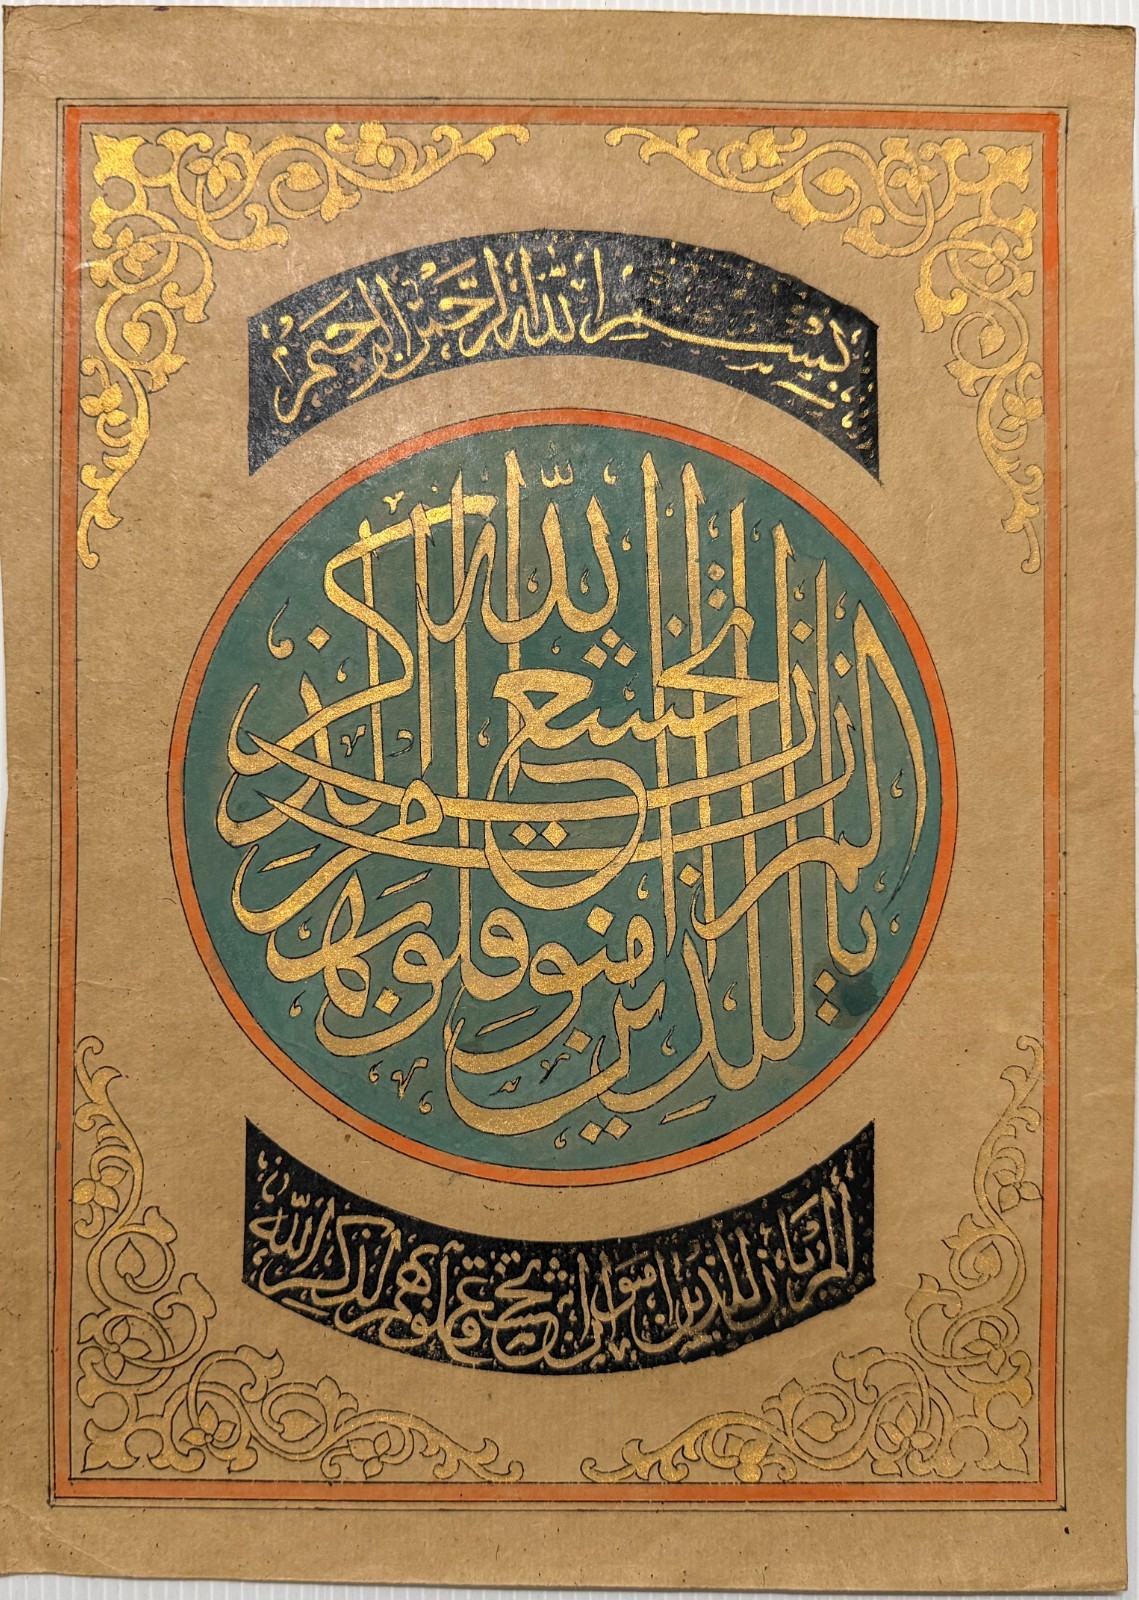 بِسْمِ اللّٰهِ الرَّحْمٰنِ الرَّحِيمِ
الم يان للذين امنوا ان تخشع قلوبهم لذكر اللّه
ألم يأن للذين امنوا ان تخشع قلوبهم لذكر اللّه